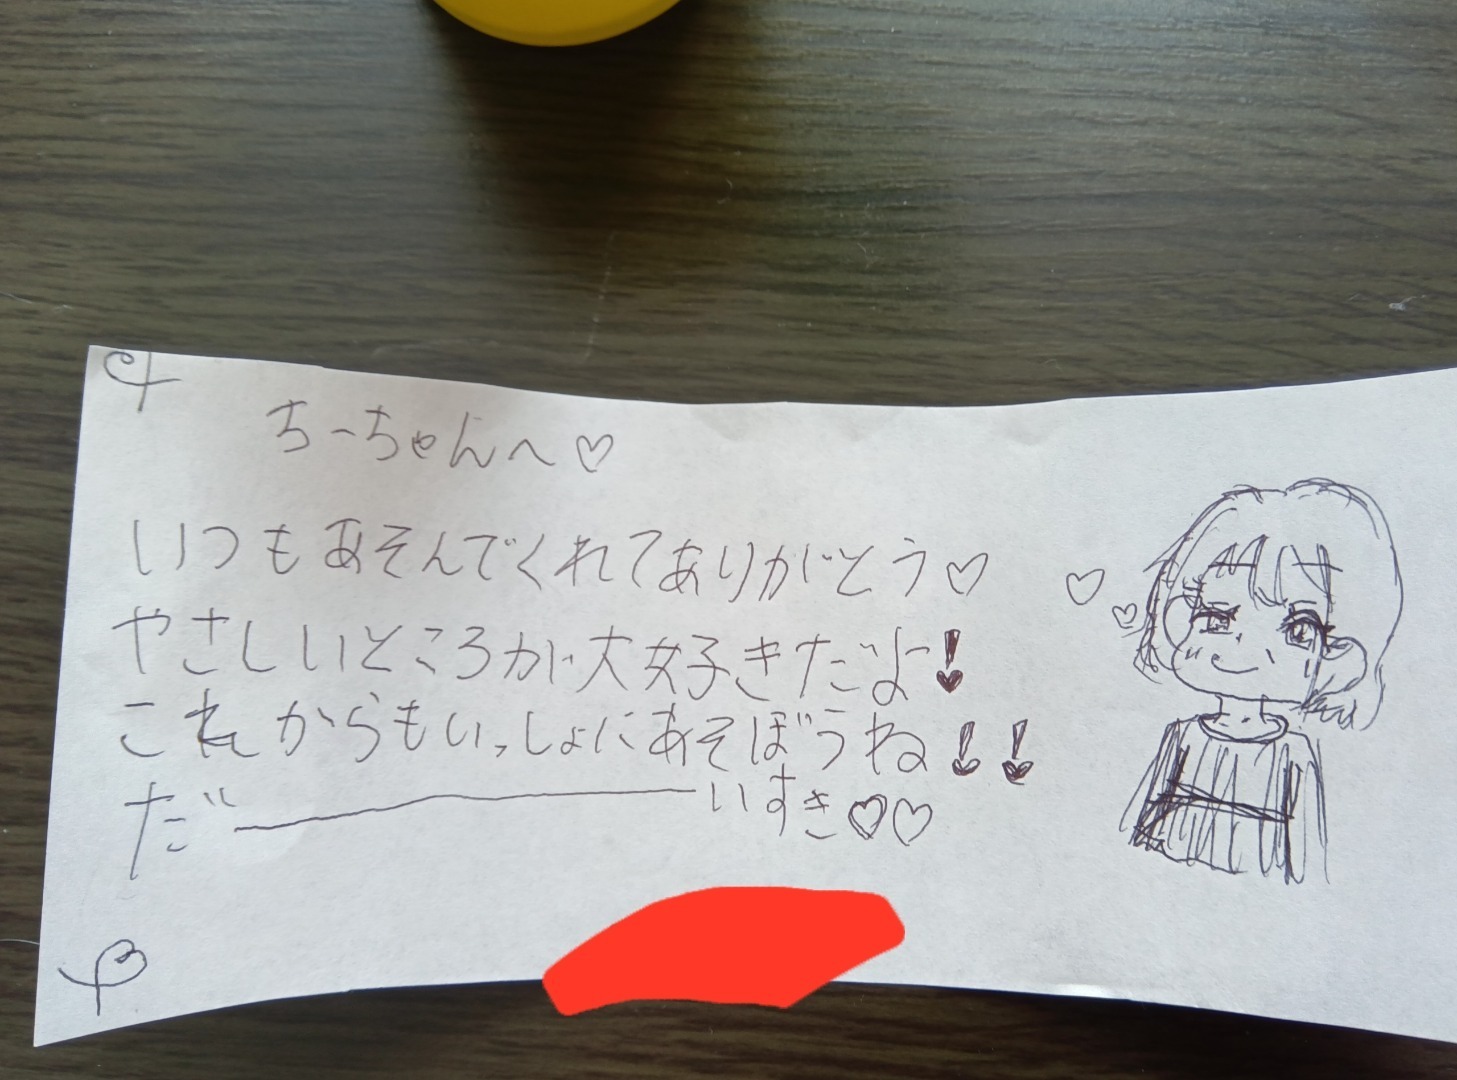 ちーちゃんへ♡
いつもあそんでくれてありがとう♡
やさしいところが大好きだよ!
これからもいっしょにあそぼうね!!
だ―いすき♡♡